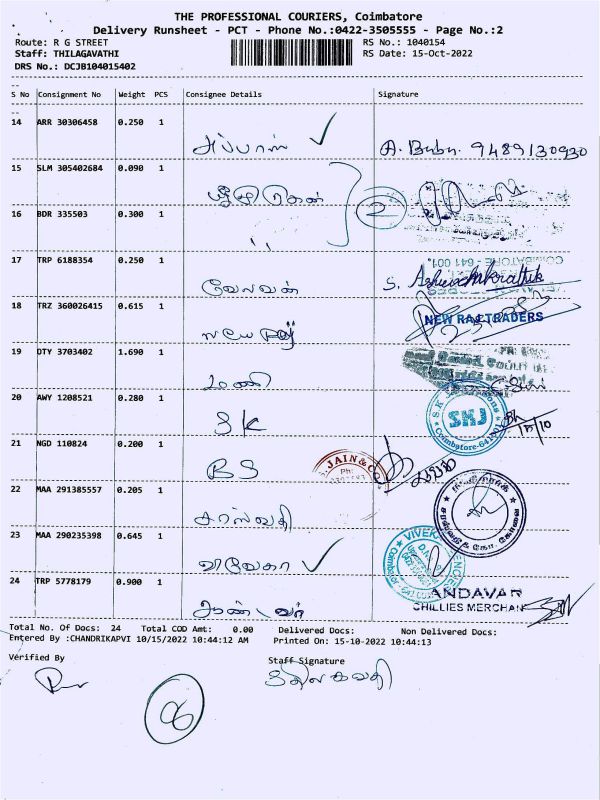 THE PROFESSIONAL COURIERS, Coimbatore
Delivery Runsheet - PCT - Phone No.:0422-3505555 - Page No.:2
Route: R G STREET RS No.: 1040154
Staff: THILAGAVATHI RS Date: 15-Oct-2022
DRS No.: DCJB104015402
S No Consignment No Weight PCS Consignee Details Signature
14 ARR 30306458 0.250 1
அப்பாஸ் A. Babu. 9489130930
15 SLM 305402684 0.090 1
2
16 BDR 335503 0.300 1
,, ,,
17 TRP 6188354 0.250 1 COIMBATORE - 641 001.
வேலவன் S.
18 TRZ 360026415 0.615 1
NEW RAJ TRADERS
19 DTY 3703402 1.690 1
மணி
20 AWY 1208521 0.280 1
SK SKJ Coimbatore 15/10
21 NGD 110824 0.200 1
BS JAIN & CO Ph:
22 MAA 291385557 0.205 1
சரஸ்வதி
23 MAA 290235398 0.645 1
விவேகா
24 TRP 5778179 0.900 1 ANDAVAR
ஆண்டவர் CHILLIES MERCHAN
Total No. Of Docs: 24 Total COD Amt: 0.00 Delivered Docs: Non Delivered Docs:
Entered By :CHANDRIKAPVI 10/15/2022 10:44:12 AM Printed On: 15-10-2022 10:44:13
Verified By Staff Signature
திலகவதி